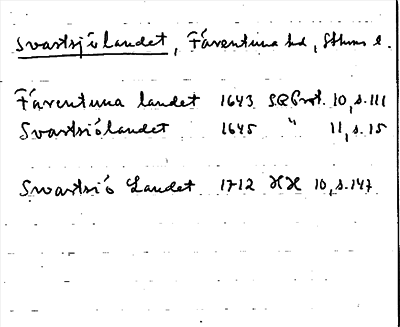 Svartsjölandet, Färentuna hd, Sthms l.
Färentuna landet 1643 SRProt. 10, s. 111
Svartsiölandet 1645 " 11, s. 15
Swartsiö Landet 1712 HH 10, s. 147